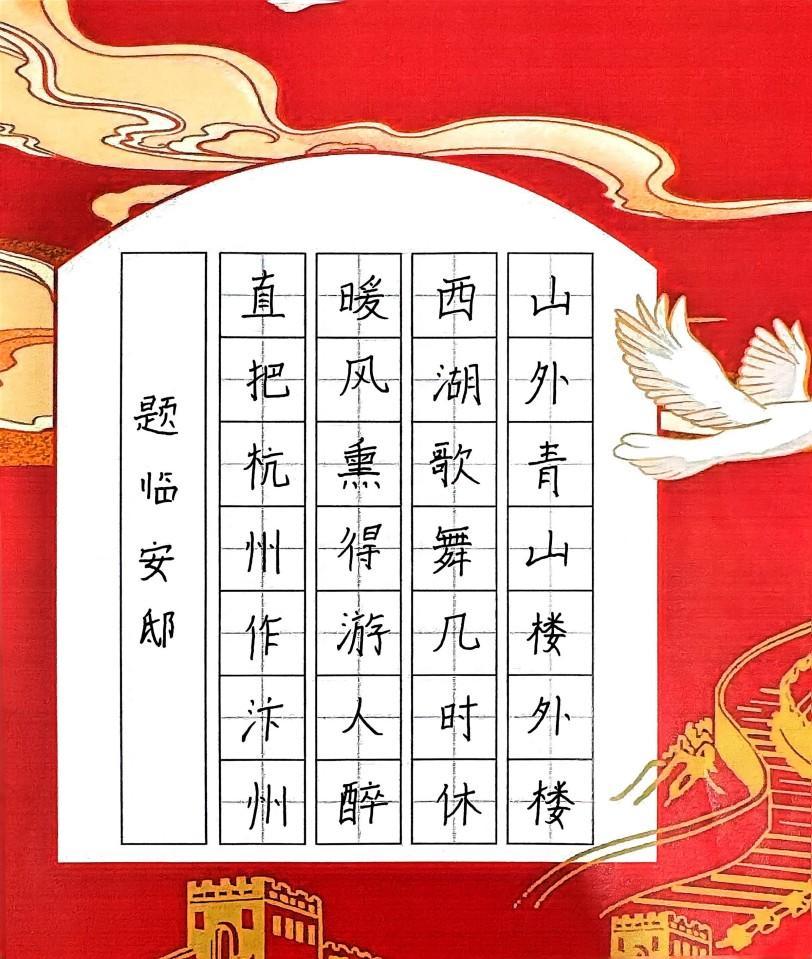 山外青山楼外楼
西湖歌舞几时休
暖风熏得游人醉
直把杭州作汴州
题临安邸